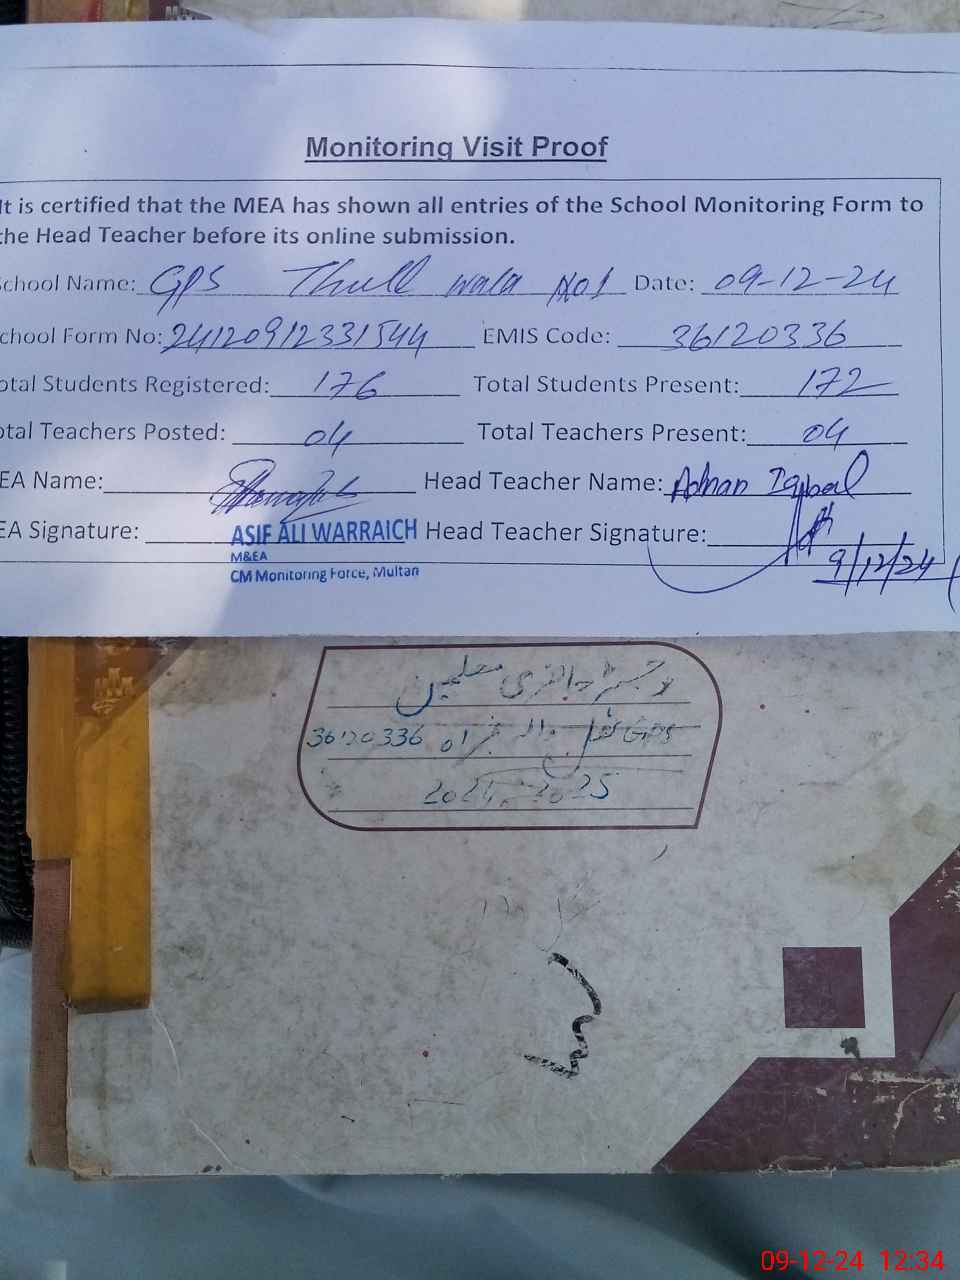 Monitoring Visit Proof
It is certified that the MEA has shown all entries of the School Monitoring Form to
the Head Teacher before its online submission.
chool Name: GPS Thull wala No1 Date: 09-12-24
chool Form No: 24120912331544 EMIS Code: 36120336
otal Students Registered: 176 Total Students Present: 172
otal Teachers Posted: 04 Total Teachers Present: 04
EA Name: Head Teacher Name: Adnan Iqbal
EA Signature: ASIF ALI WARRAICH Head Teacher Signature:
M&EA
CM Monitoring Force, Multan
9/12/24
رجسٹر حاضری معلمین
GPS تھل والہ نمبر 01 36120336
2024-2025
09-12-24 12:34